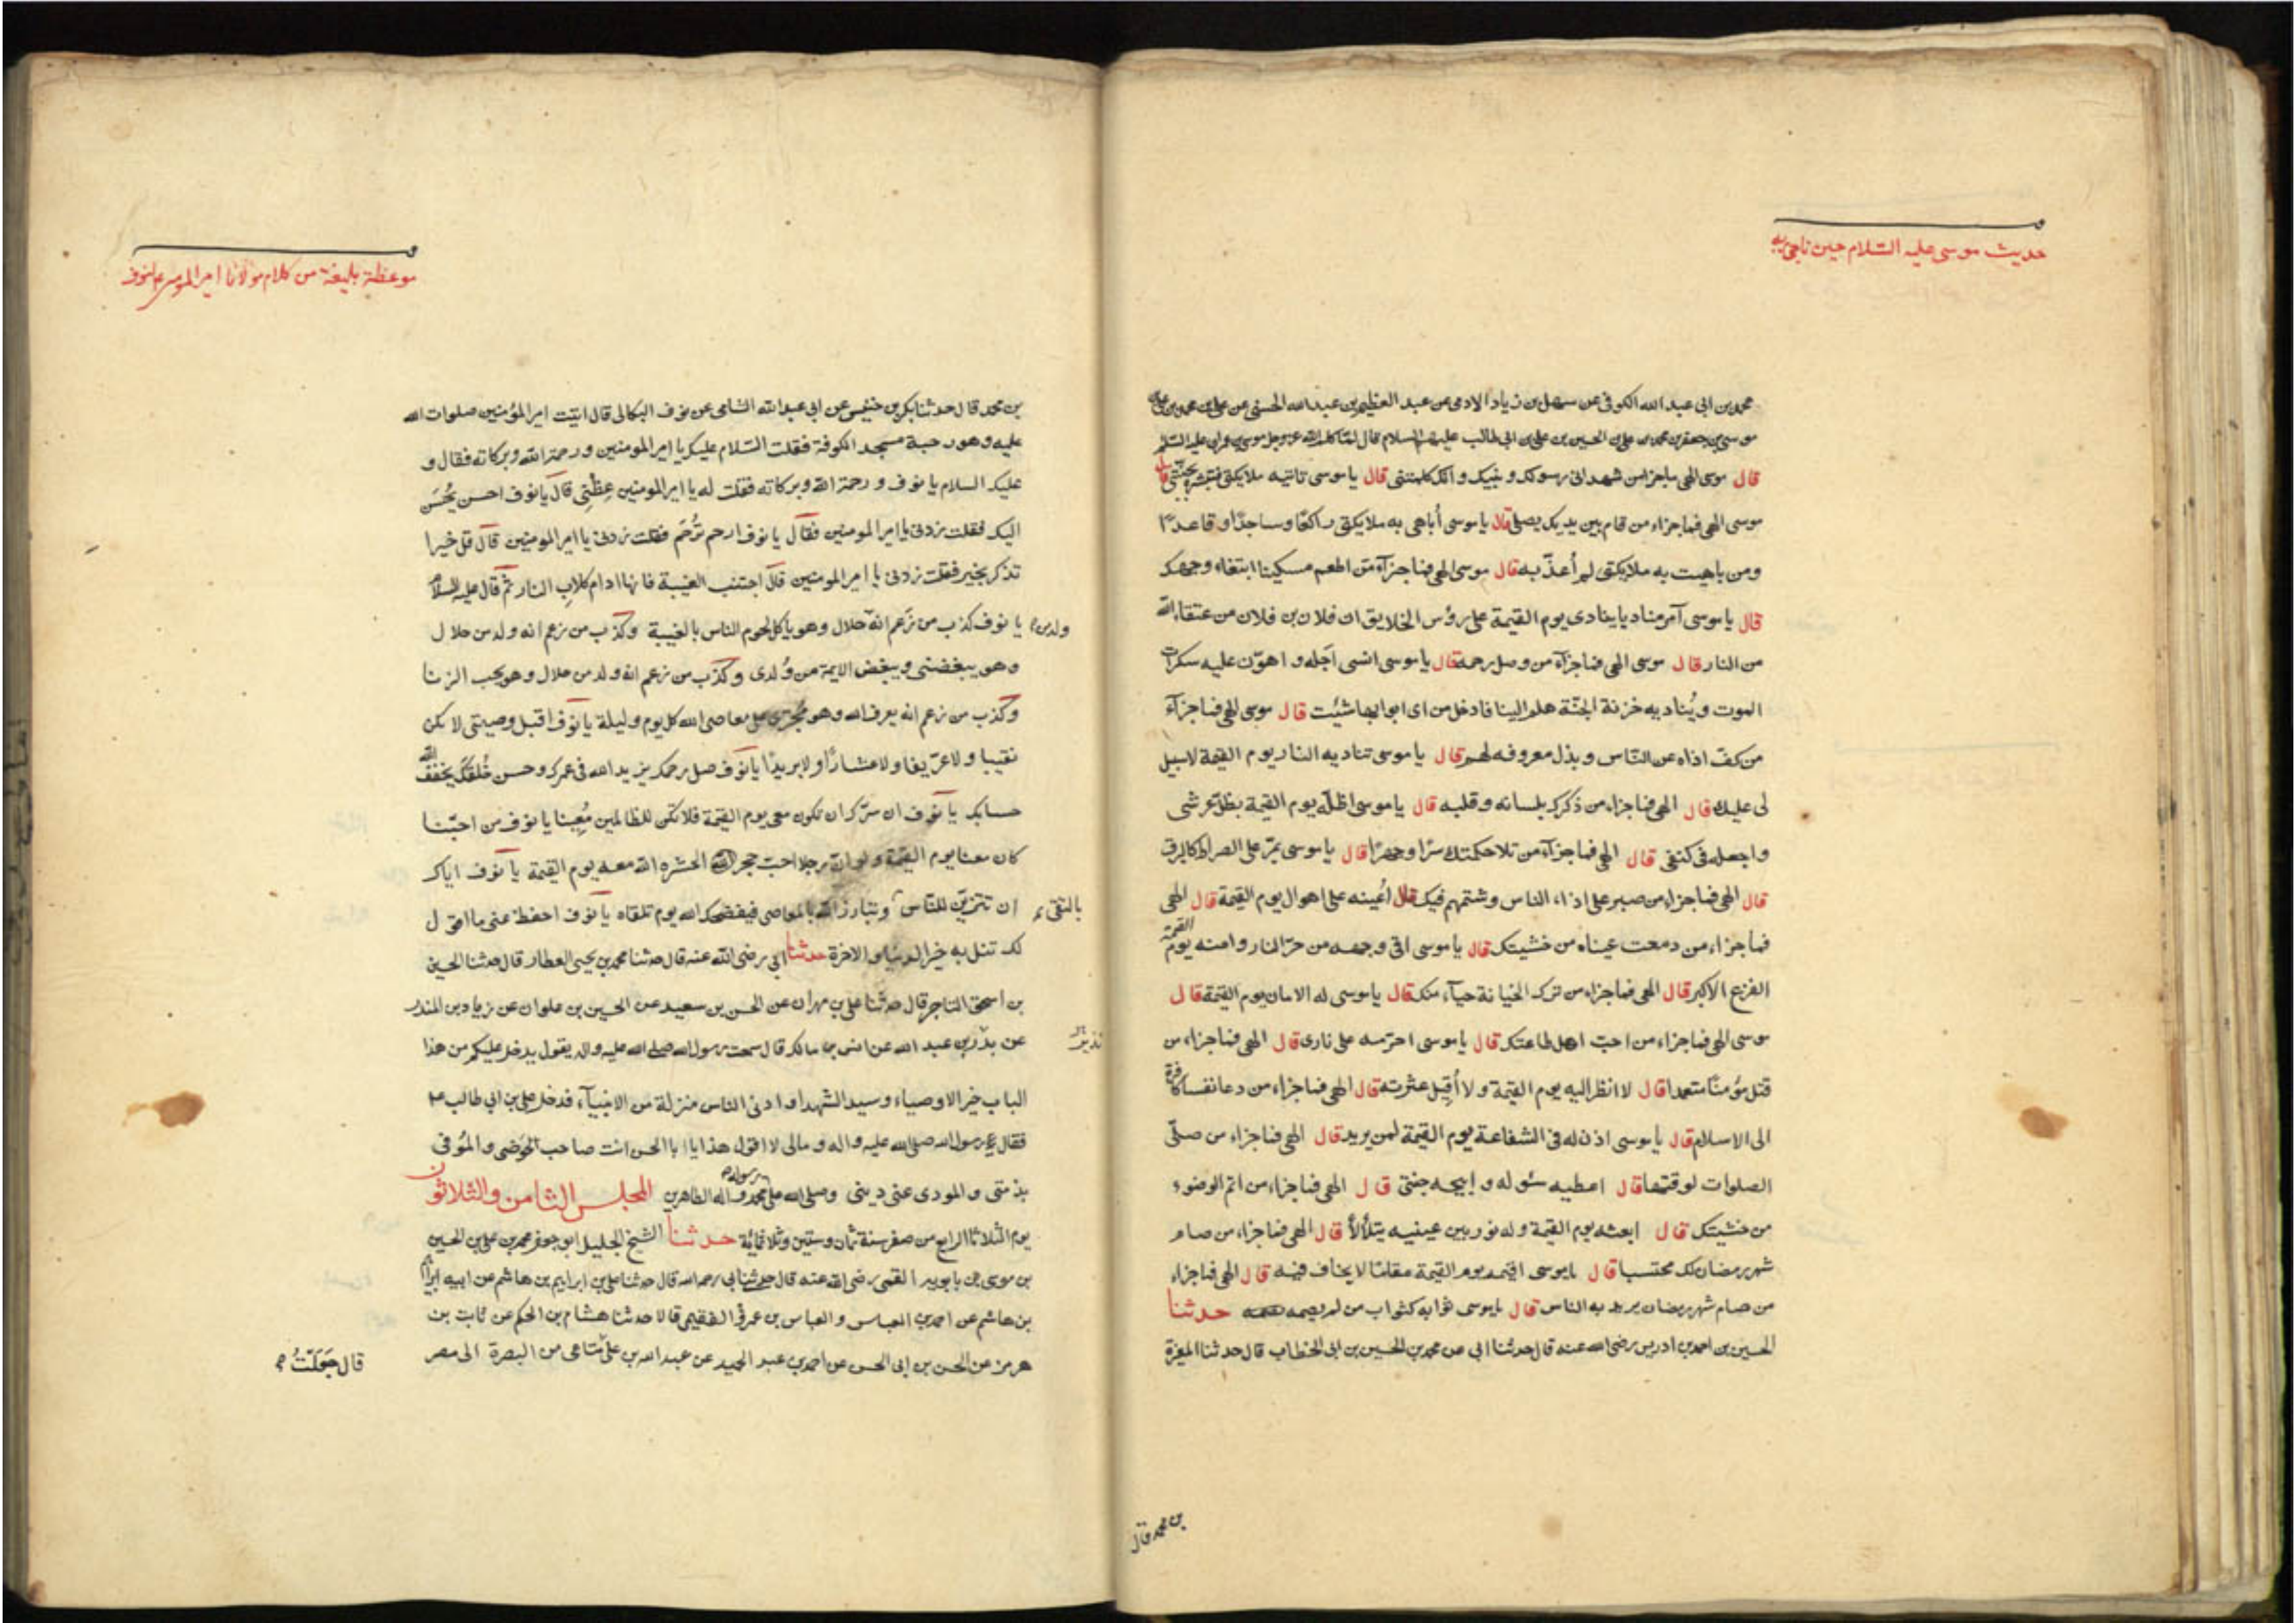 حديث موسى عليه السلام حين ناجى ربه
محمد بن ابى عبد الله الكوفى عن سهل بن زياد الادمى عن عبد العظيم بن عبد الله الحسنى عن على بن محمد بن على بن
موسى بن جعفر بن محمد بن على بن الحسين بن على بن ابى طالب عليهم السلام قال لما كلم الله عز وجل موسى بن عمران عليه السلم
قال موسى الهى ماجزا من شهد انى رسولك ونبيك وانك كلمتنى قال ياموسى تاتيه ملايكتى فتبشره بجنتى قال
موسى الهى فماجزاء من قام بين يديك يصلى قال ياموسى أباهى به ملايكتى راكعا وساجدا وقاعدا
ومن باهيت به ملايكتى لم أعذبه قال موسى الهى فماجزآء من اطعم مسكينا ابتغاء وجهك
قال ياموسى آمر مناديا ينادى يوم القيمة على رؤس الخلايق ان فلان بن فلان من عتقاء الله
من النار قال موسى الهى فماجزآء من وصل رحمه قال ياموسى انسى اجله واهون عليه سكرات
الموت ويناديه خزنة الجنة هلم الينا فادخل من اى ابوابها شئت قال موسى الهى فماجزآء
من كف اذاه عن الناس وبذل معروفه لهم قال ياموسى تناديه النار يوم القيمة لاسبيل
لى عليك قال الهى فماجزاء من ذكرك بلسانه وقلبه قال ياموسى اظله يوم القيمة بظل عرشى
واجعله فى كنفى قال الهى فماجزآء من تلا حكمتك سرا وجهرا قال ياموسى يمر على الصراط كالبرق
قال الهى فماجزاء من صبر على اذاء الناس وشتمهم فيك قال اعينه على اهوال يوم القيمة قال الهى
فماجزاء من دمعت عيناه من خشيتك قال ياموسى اقى وجهه من حر النار وامنه يوم القيمة
الفزع الاكبر قال الهى فماجزاء من ترك الخيانة حيآء منك قال ياموسى له الامان يوم القيمة قال
موسى الهى فماجزاء من احب اهل طاعتك قال ياموسى احرمه على نارى قال الهى فماجزاء من
قتل مؤمنا متعمدا قال لا انظر اليه يوم القيمة ولا أقيل عثرته قال الهى فماجزاء من دعا نفسا كافرة
الى الاسلام قال ياموسى اذن له فى الشفاعة يوم القيمة لمن يريد قال الهى فماجزاء من صلى
الصلوات لوقتها قال اعطيه سئوله وابيحه جنتى قال الهى فماجزاء من اتم الوضوء
من خشيتك قال ابعثه يوم القيمة وله نور بين عينيه يتلألأ قال الهى فماجزاء من صام
شهر رمضان لك محتسبا قال ياموسى اقيمه يوم القيمة مقاما لا يخاف فيه قال الهى فماجزاء
من صام شهر رمضان يريد به الناس قال ياموسى ثوابه كثواب من لم يصمه حدثنا
الحسين بن احمد بن ادريس رضى الله عنه قال حدثنا ابى عن محمد بن الحسين بن ابى الخطاب قال حدثنا المغيرة
بن محمد قال
موعظة بليغة من كلام مولانا امير المومنين لنوف
بن محمد قال حدثنا بكر بن خنيس عن ابى عبد الله الشامى عن نوف البكالى قال اتيت امير المؤمنين صلوات الله
عليه وهو رحبة مسجد الكوفة فقلت السلام عليك يا امير المومنين ورحمة الله وبركاته فقال و
عليك السلام يانوف ورحمة الله وبركاته فقلت له يا امير المومنين عظنى قال يانوف احسن يحسن
اليك فقلت زدنى يا امير المومنين فقال يانوف ارحم ترحم فقلت زدنى يا امير المومنين قال قل خيرا
تذكر بخير فقلت زدنى يا امير المومنين قال اجتنب الغيبة فانها ادام كلاب النار ثم قال عليه السلام
يانوف كذب من زعم انه حلال وهو ياكل لحوم الناس بالغيبة وكذب من زعم انه ولد من حلال
ولد من
وهو يبغضنى ويبغض الايمة من ولدى وكذب من زعم انه ولد من حلال وهو يحب الزنا
وكذب من زعم انه يعرف الله وهو مجترى على معاصى الله كل يوم وليلة يانوف اقبل وصيتى لا تكن
نقيبا ولا عريفا ولا عشارا ولا بريدا يانوف صل رحمك يزيد الله فى عمرك وحسن خلقك يخفف الله
حسابك يانوف ان سرك ان تكون معى يوم القيمة فلا تكن للظالمين معينا يانوف من احبنا
كان معنا يوم القيمة ولو ان رجلا احب حجرا لحشره الله معه يوم القيمة يانوف اياك
ان تتزين للناس وتبارز الله بالمعاصى فيفضحك الله يوم تلقاه يانوف احفظ عنى ما اقول
لك تنل به خير الدنيا والاخرة حدثنا ابى رضى الله عنه قال حدثنا محمد بن يحيى العطار قال حدثنا الحسين
بن اسحق التاجر قال حدثنا على بن مهران عن الحسن بن سعيد عن الحسين بن علوان عن زياد بن المنذر
عن بدر بن عبد الله عن انس بن مالك قال سمعت رسول الله صلى الله عليه واله يقول يدخل عليكم من هذا
الباب خير الاوصياء وسيد الشهداء وادنى الناس منزلة من الانبيآء فدخل على بن ابى طالب ع
فقال رسول الله صلى الله عليه واله ومالى لا اقول هذا يا ابا الحسن انت صاحب الحوضى والموفى
بذمتى والمودى عنى دينى وصلى الله على رسوله محمد وآله الطاهرين المجلس الثامن والثلاثون
يوم الثلاثا الرابع من صفر سنة ثمان وستين وثلاثمائة حدثنا الشيخ الجليل ابو جعفر محمد بن على بن الحسين
بن موسى بن بابويه القمى رضى الله عنه قال حدثنا ابى رحمه الله قال حدثنا على بن ابراهيم بن هاشم عن ابيه ابراهيم
بن هاشم عن احمد بن العباس والعباس بن عمرو الفقيمى قالا حدثنا هشام بن الحكم عن ثابت بن
هرمز عن الحسن بن ابى الحسن عن احمد بن عبد الحميد عن عبد الله بن على متاعى من البصرة الى مصر
قال حملت